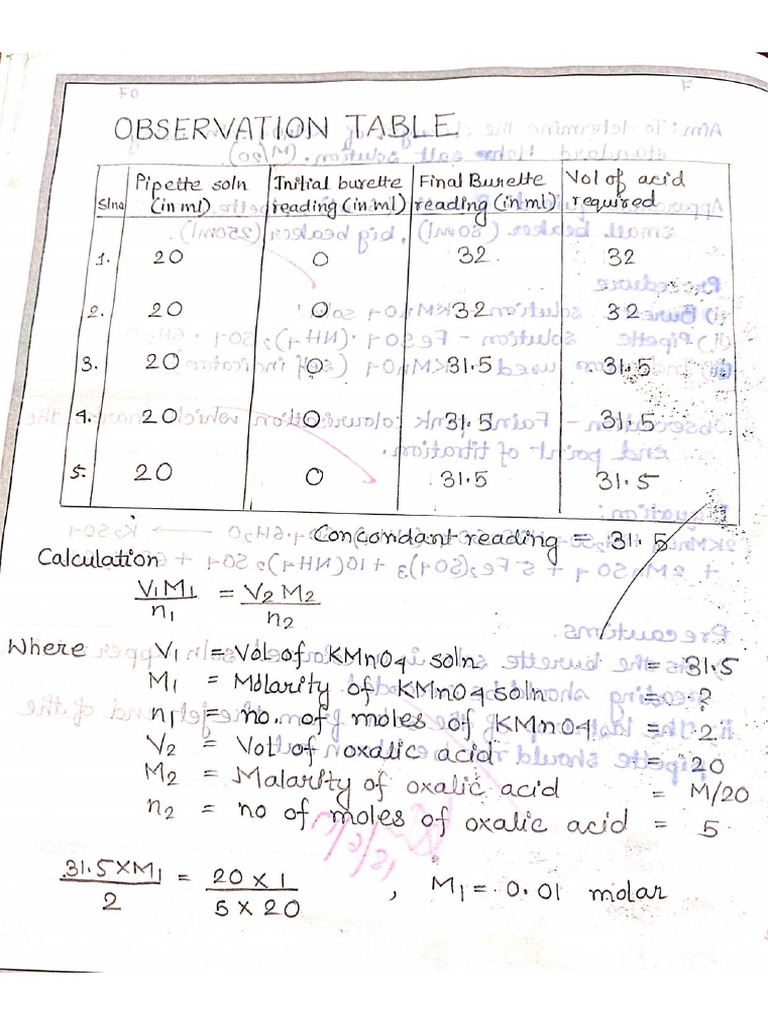 OBSERVATION TABLE
Slno Pipette soln (in ml) Initial burette reading (in ml) Final Burette reading (in ml) Vol of acid required
1. 20 0 32 32
2. 20 0 32 32
3. 20 0 31.5 31.5
4. 20 0 31.5 31.5
5. 20 0 31.5 31.5
Concordant reading = 31.5
Calculation
V1M1 = V2M2
n1 n2
Where V1 = Vol of KMnO4 soln = 31.5
M1 = Molarity of KMnO4 soln = ?
n1 = no. of moles of KMnO4 = 2
V2 = Vol of oxalic acid = 20
M2 = Malarity of oxalic acid = M/20
n2 = no of moles of oxalic acid = 5
31.5 X M1 = 20 X 1 , M1 = 0.01 molar
2 5 X 20